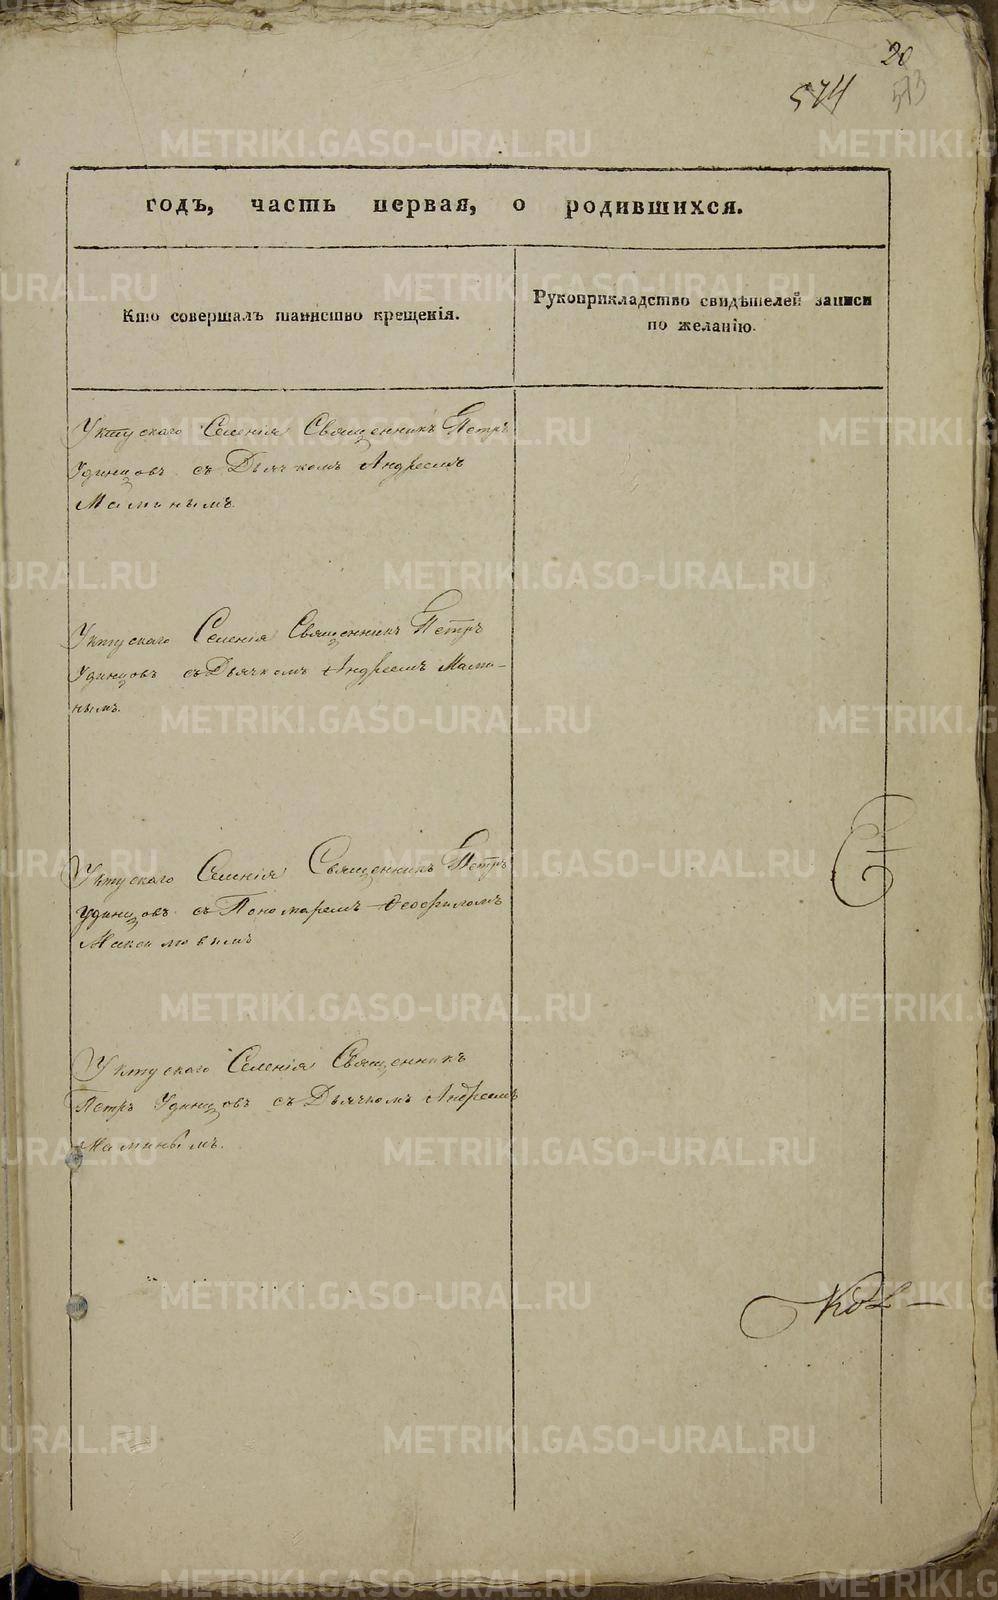 20
574 573
годъ, часть первая, о родившихся.
Кто совершалъ таинство крещенія.
Рукоприкладство свидѣтелей записи
по желанію.
Уктускаго Селенія Священникъ Петръ
Удинцовъ съ Дьячкомъ Андреемъ
Маминымъ.
Уктускаго Селенія Священникъ Петръ
Удинцовъ съ Дьячкомъ Андреемъ Мами-
нымъ.
Уктускаго Селенія Священникъ Петръ
Удинцовъ съ Пономаремъ Ѳеофиломъ
Макси
Уктускаго Селенія Священникъ
Петръ Удинцовъ съ Дьячкомъ Андреемъ
Маминымъ.
METRIKI.GASO-URAL.RU